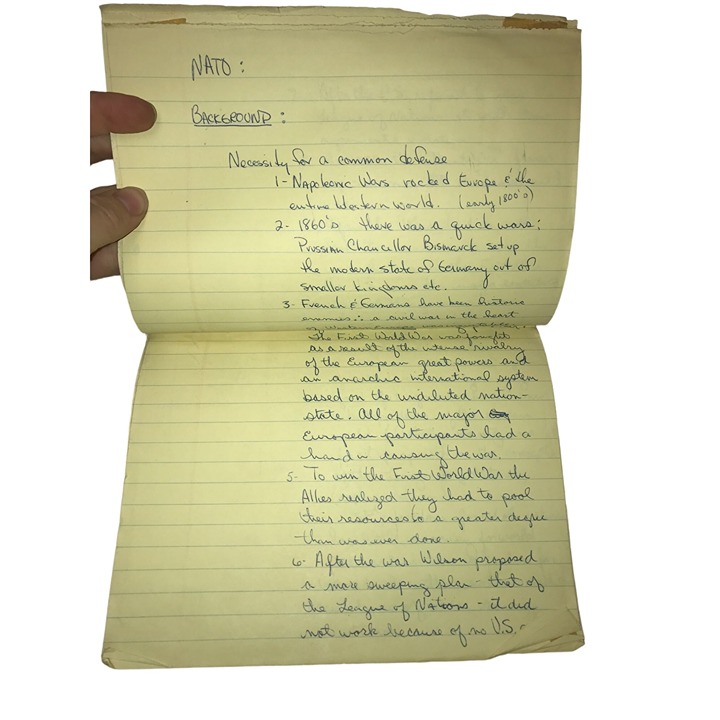 NATO :
BACKGROUND :
Necessity for a common defense
1- Napoleonic Wars rocked Europe & the
entire Western world. (early 1800's)
2- 1860's there was a quick wars:
Prussian Chancellor Bismarck set up
the modern state of Germany out of
smaller kingdoms etc.
3- French & Germans have been historic
enemies ∴ a civil war in the heart
of Western Europe
The First World War was fought
as a result of the intense rivalry
of the European great powers and
an anarchic international system
based on the undiluted nation-
state. All of the major
European participants had a
hand in causing the war.
5- To win the First World War the
Allies realized they had to pool
their resources to a greater degree
than was ever done.
6- After the war Wilson proposed
a more sweeping plan - that of
the League of Nations - it did
not work because of no U.S. -